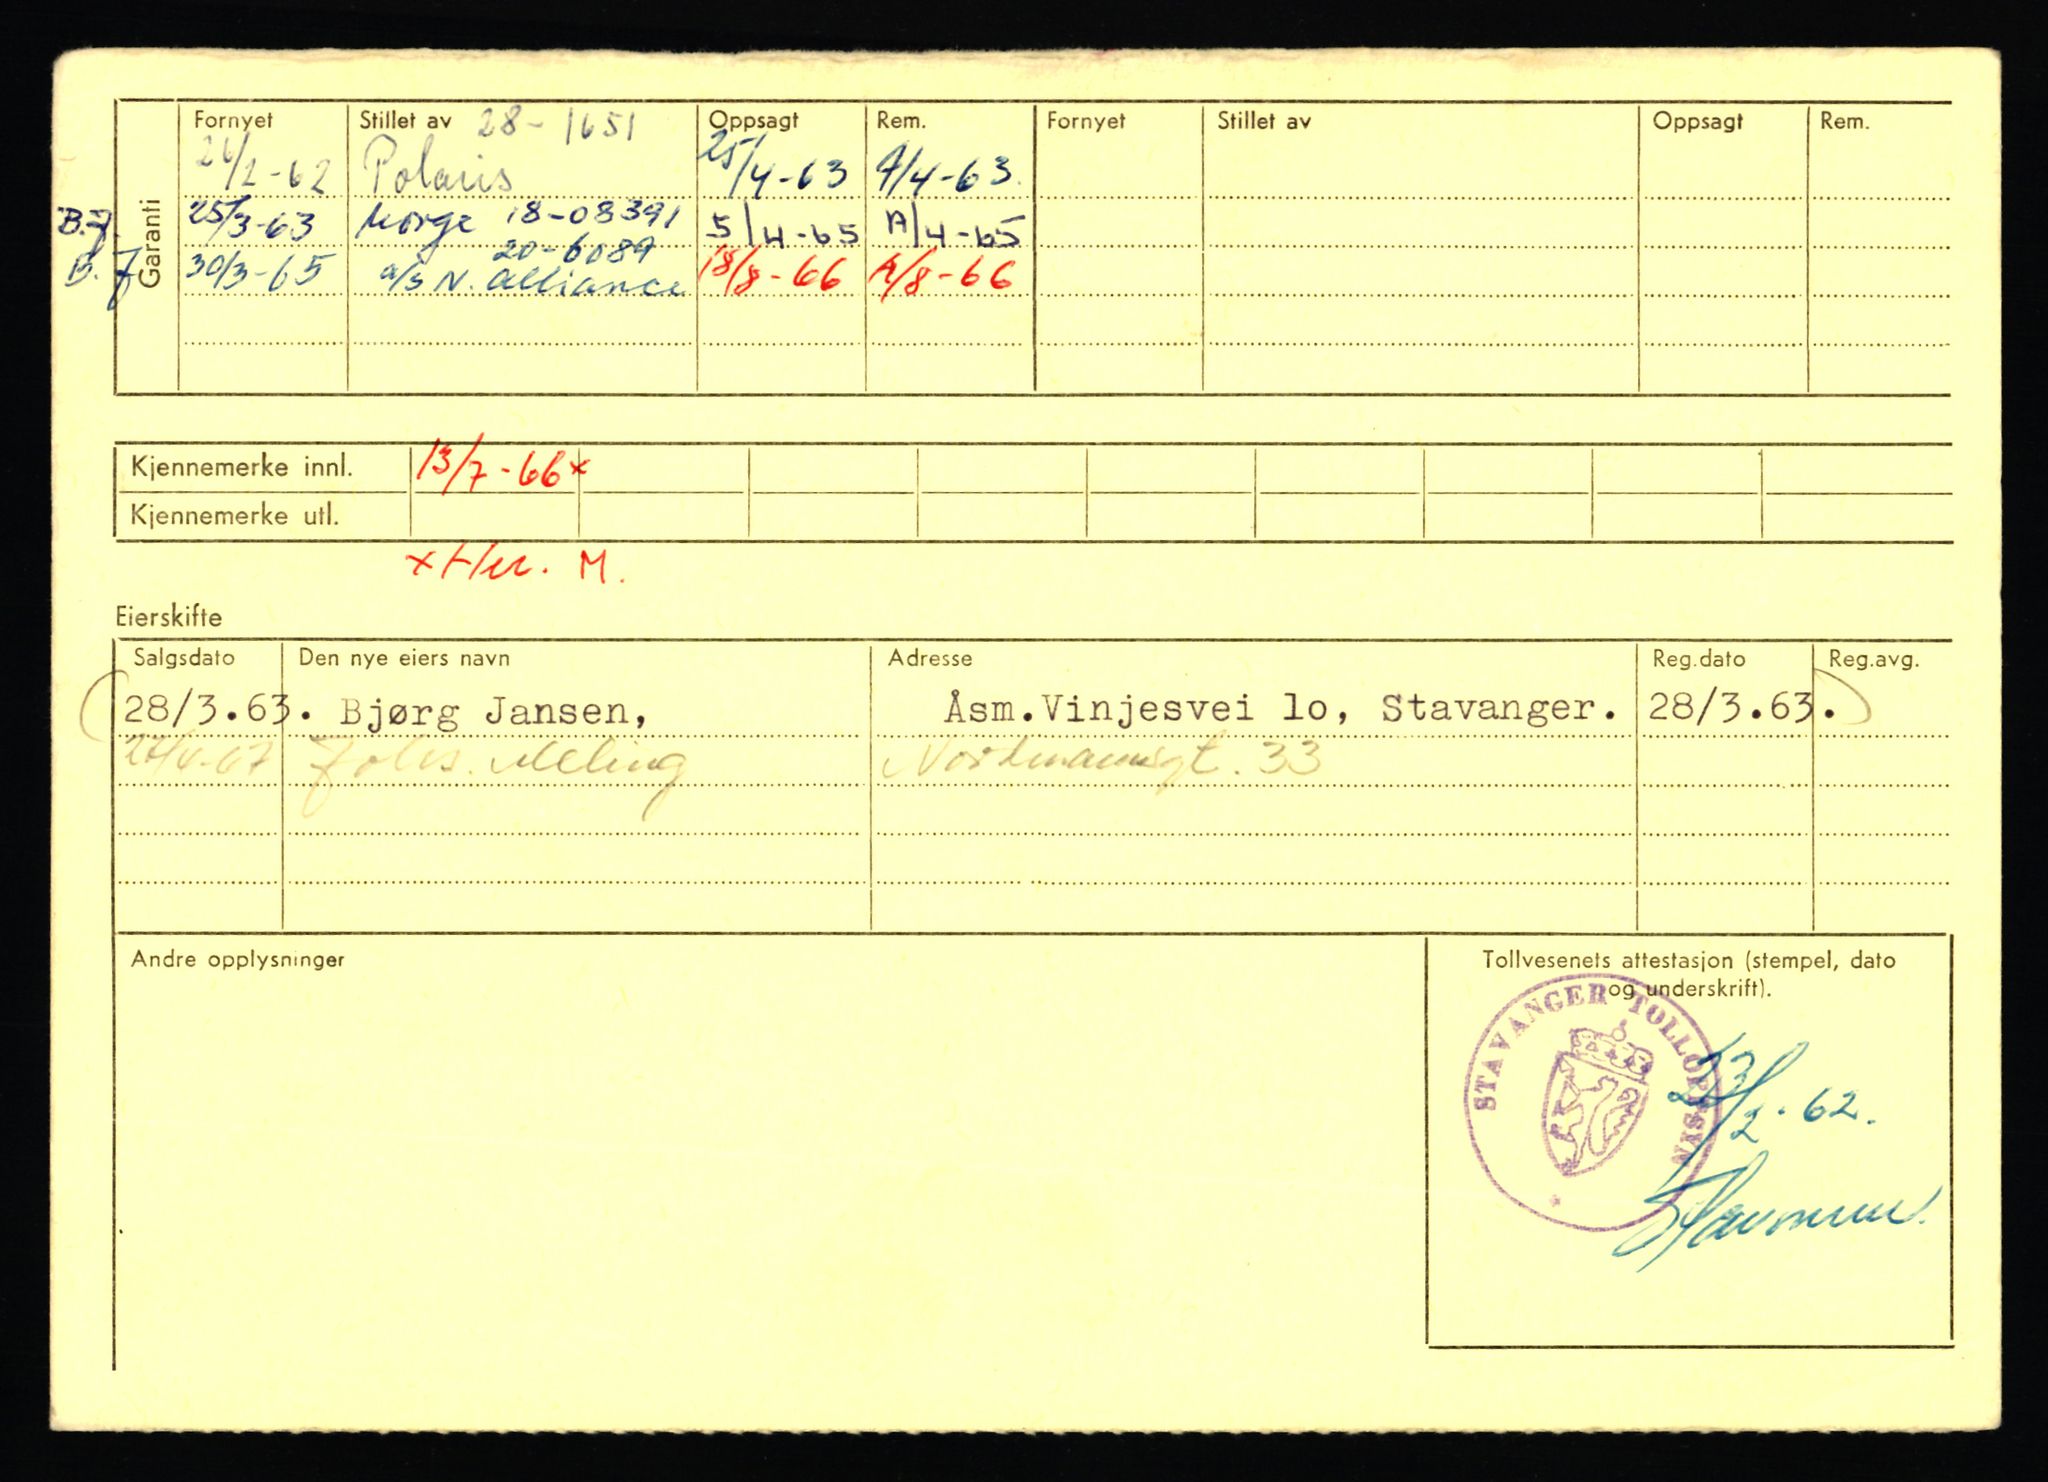 Garanti
Fornyet Stillet av 28-1651 Oppsagt Rem. Fornyet Stillet av Oppsagt Rem.
26/2-62 Polaris 25/4-63 A/4-63.
B.J. 25/3-63 Norge 18-08391 5/4-65 A/4-65
20-6089
B. J 30/3-65 a/s N. Alliance 18/8-66 A/8-66
Kjennemerke innl. 13/7-66x
Kjennemerke utl.
x Her. M.
Eierskifte
Salgsdato Den nye eiers navn Adresse Reg.dato Reg.avg.
(28/3.63. Bjørg Jansen, Åsm.Vinjesvei lo, Stavanger. 28/3.63.)
Johs. Meling Nordmannsgt. 33
Andre opplysninger
Tollvesenets attestasjon (stempel, dato
og underskrift).
STAVANGER TOLLOPPSYN
23/2-62.